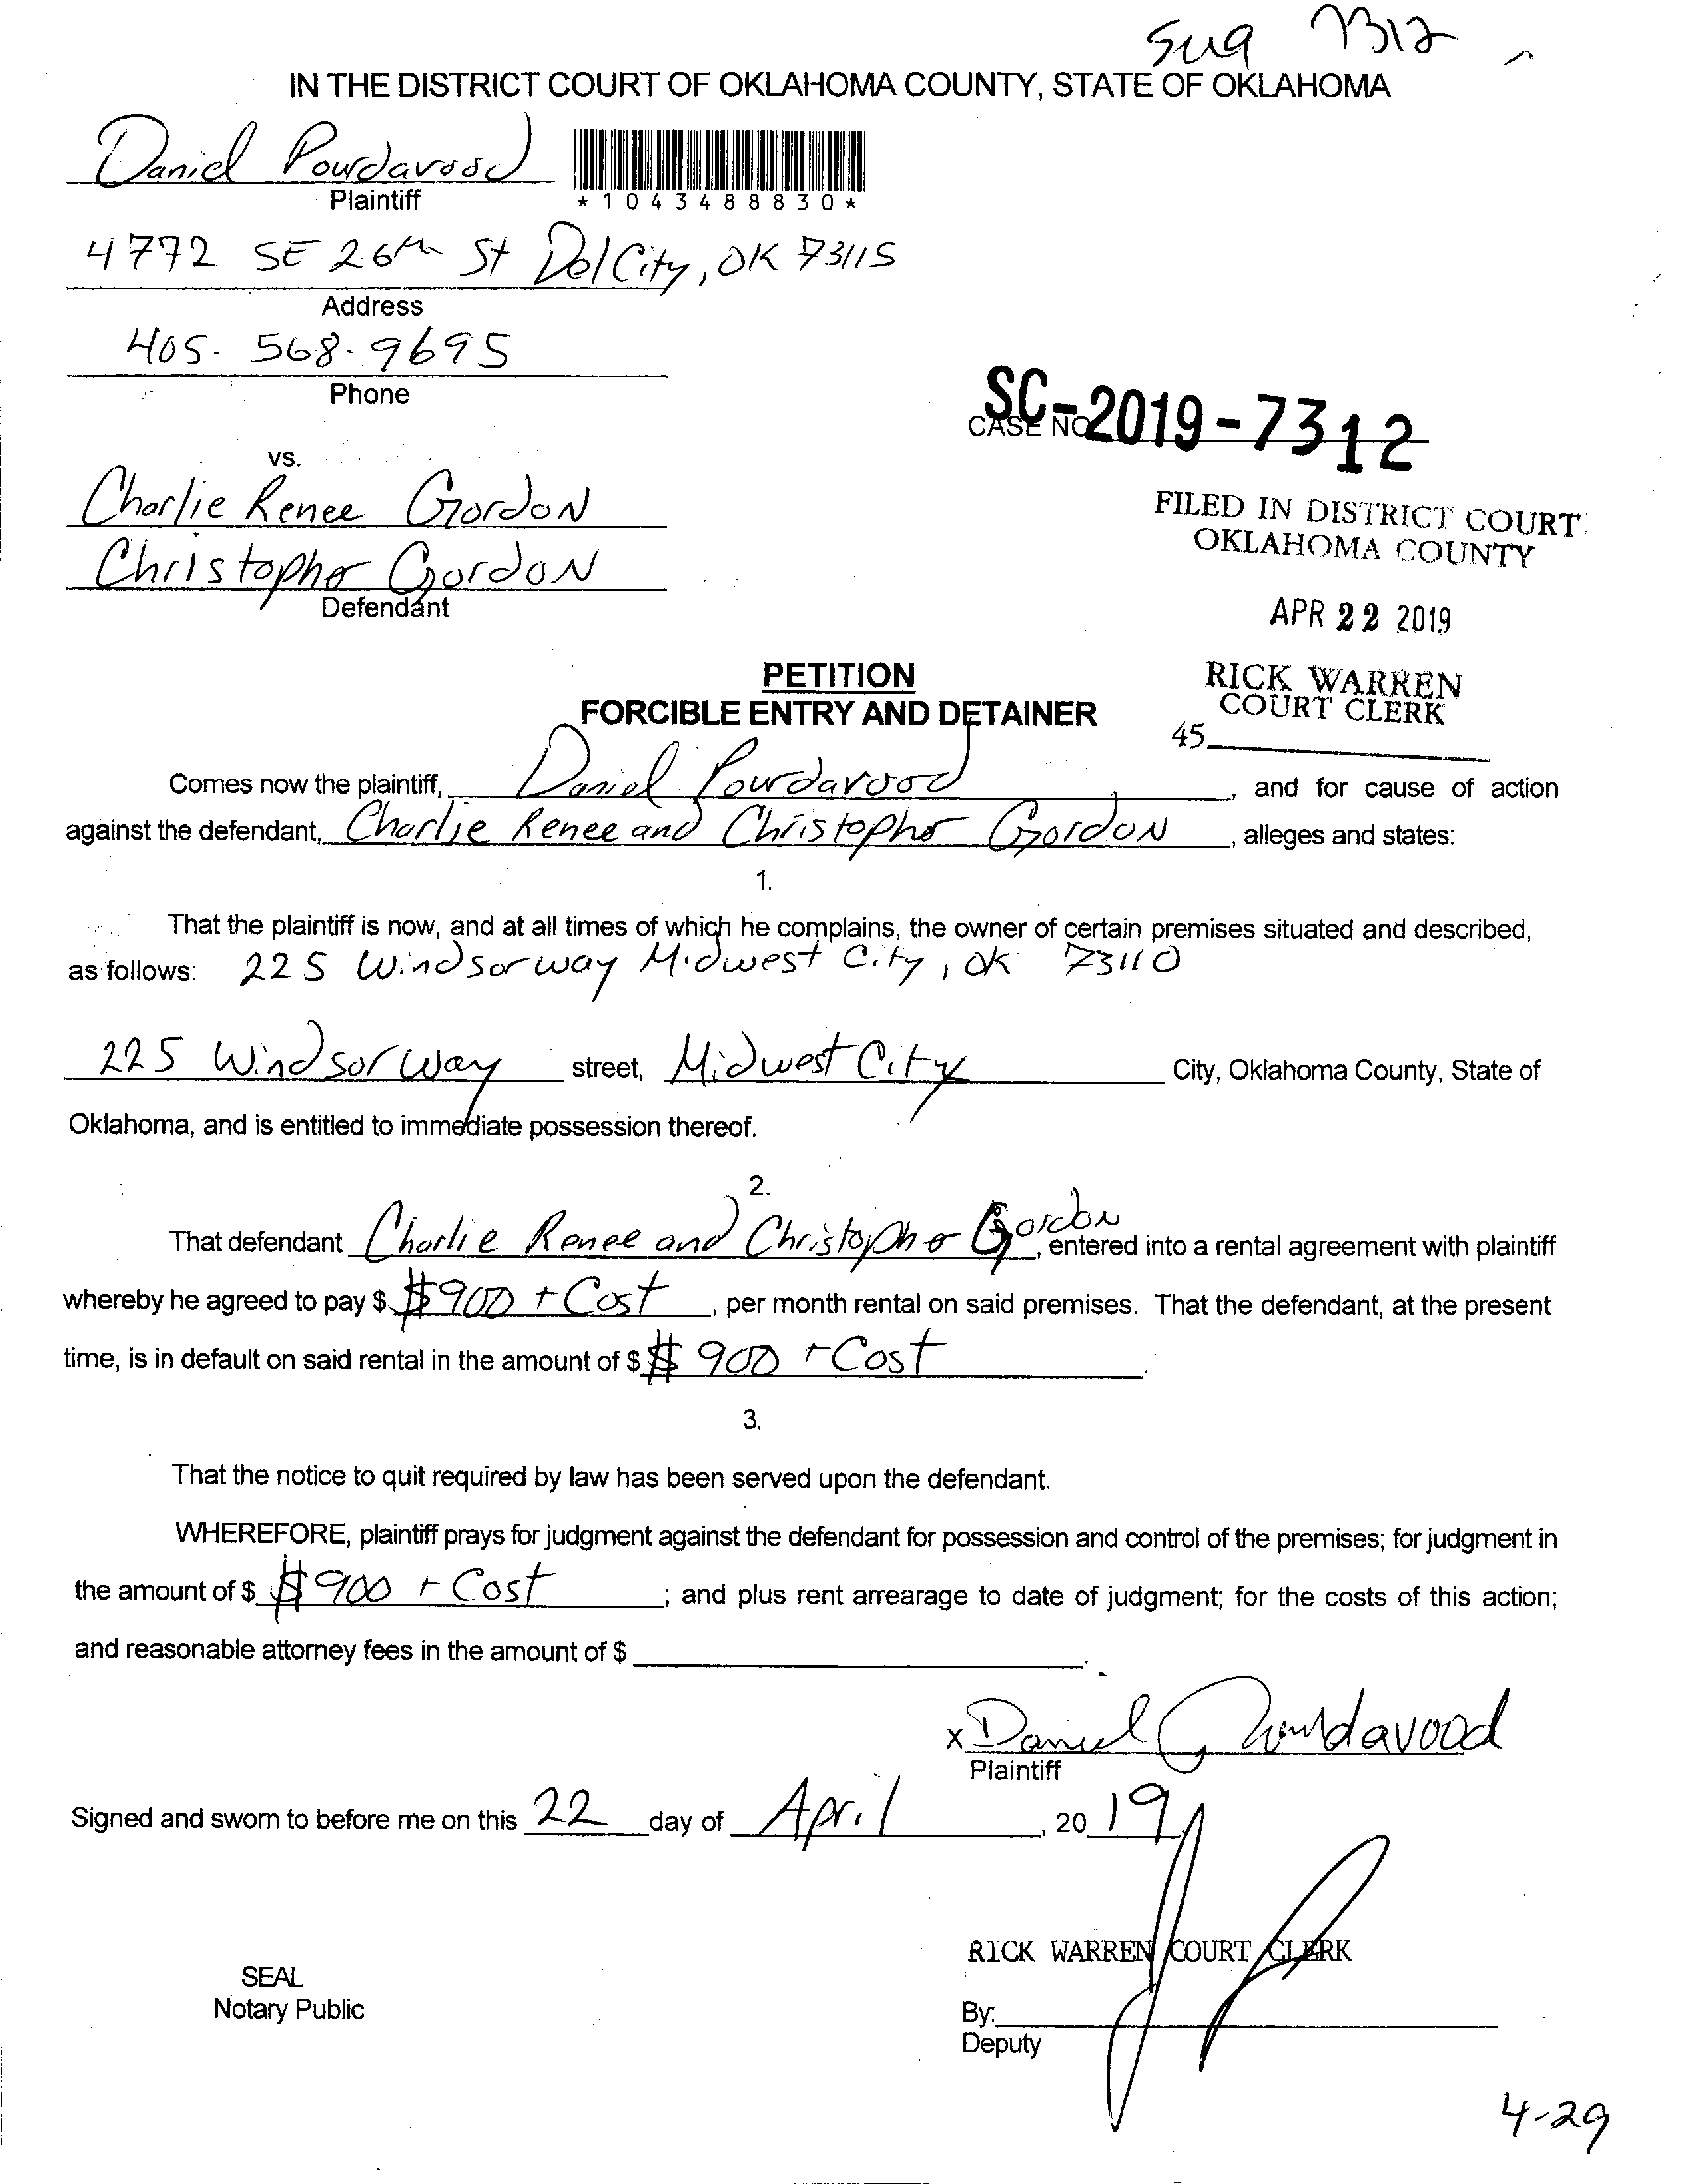 7312
IN THE DISTRICT COURT OF OKLAHOMA COUNTY, STATE OF OKLAHOMA
Daniel Pourdavood
Plaintiff
*1043488830*
4772 SE 26th St Del City, OK 73115
Address
405-568-9695
Phone
SC-2019-7312
CASE NO
vs.
Charlie Renee Gordon
Christopher Gordon
Defendant
FILED IN DISTRICT COURT
OKLAHOMA COUNTY
APR 22 2019
RICK WARREN
COURT CLERK
45
PETITION
FORCIBLE ENTRY AND DETAINER
Comes now the plaintiff, Daniel Pourdavood, and for cause of action
against the defendant, Charlie Renee and Christopher Gordon, alleges and states:
1.
That the plaintiff is now, and at all times of which he complains, the owner of certain premises situated and described,
as follows: 225 Windsor way Midwest City, OK 73110
225 Windsor Way street, Midwest City City, Oklahoma County, State of
Oklahoma, and is entitled to immediate possession thereof.
2.
That defendant Charlie Renee and Christopher Gordon, entered into a rental agreement with plaintiff
whereby he agreed to pay $ $900 + Cost, per month rental on said premises. That the defendant, at the present
time, is in default on said rental in the amount of $ $900 + Cost.
3.
That the notice to quit required by law has been served upon the defendant.
WHEREFORE, plaintiff prays for judgment against the defendant for possession and control of the premises; for judgment in
the amount of $ $900 + Cost; and plus rent arrearage to date of judgment; for the costs of this action;
and reasonable attorney fees in the amount of $
x Daniel Pourdavood
Plaintiff
Signed and sworn to before me on this 22 day of April, 2019
RICK WARREN COURT CLERK
SEAL
Notary Public
By:
Deputy
4-29